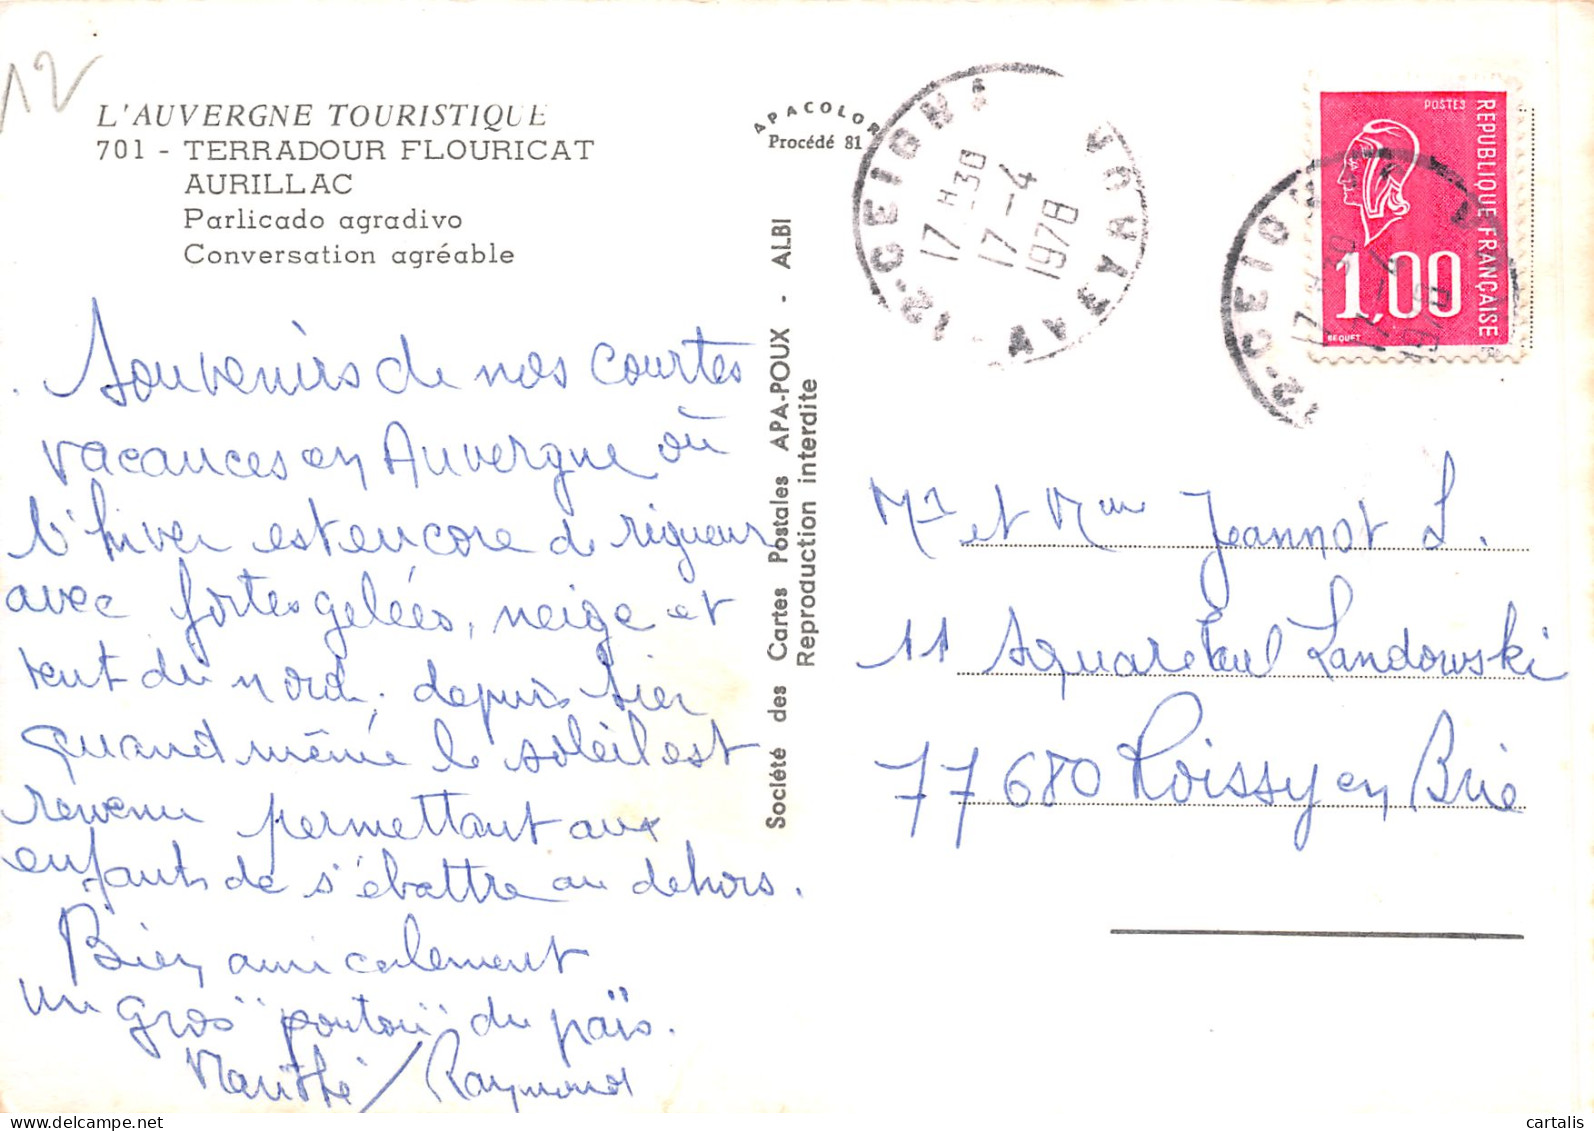 12
L'AUVERGNE TOURISTIQUE
701 - TERRADOUR FLOURICAT
AURILLAC
Parlicado agradivo
Conversation agréable
Souvenirs de nos courtes
vacances en Auvergne où
l'hiver est encore de rigueur
avec fortes gelées, neige et
vent du nord, depuis hier
quand même le soleil est
revenu permettant aux
enfants de s'ébattre au dehors.
Bien amicalement
un gros "poutou" du païs.
Marithé / Raymond
APACOLOR
Procédé 81
Société des Cartes Postales APA-POUX - ALBI
Reproduction interdite
12-CEIGNAC
17 H30
17-4
1978
AVEYRON
POSTES
REPUBLIQUE FRANÇAISE
1,00
BEQUET
12-CEIGN
17 H30
17-4
1978
Mr et Mme Jeannot L.
11 square Paul Landowski
77680 Roissy en Brie
cartalis